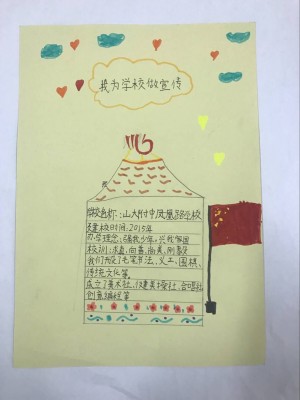 我为学校做宣传
学校名称:山大附中凤凰路学校
建校时间:2015年
办学理念:强我少年,兴我中国
校训:求真,向善,尚美,
我们开设了毛笔书法,义工,围棋,
传统文化等。
成立了美术社,
创意编程等